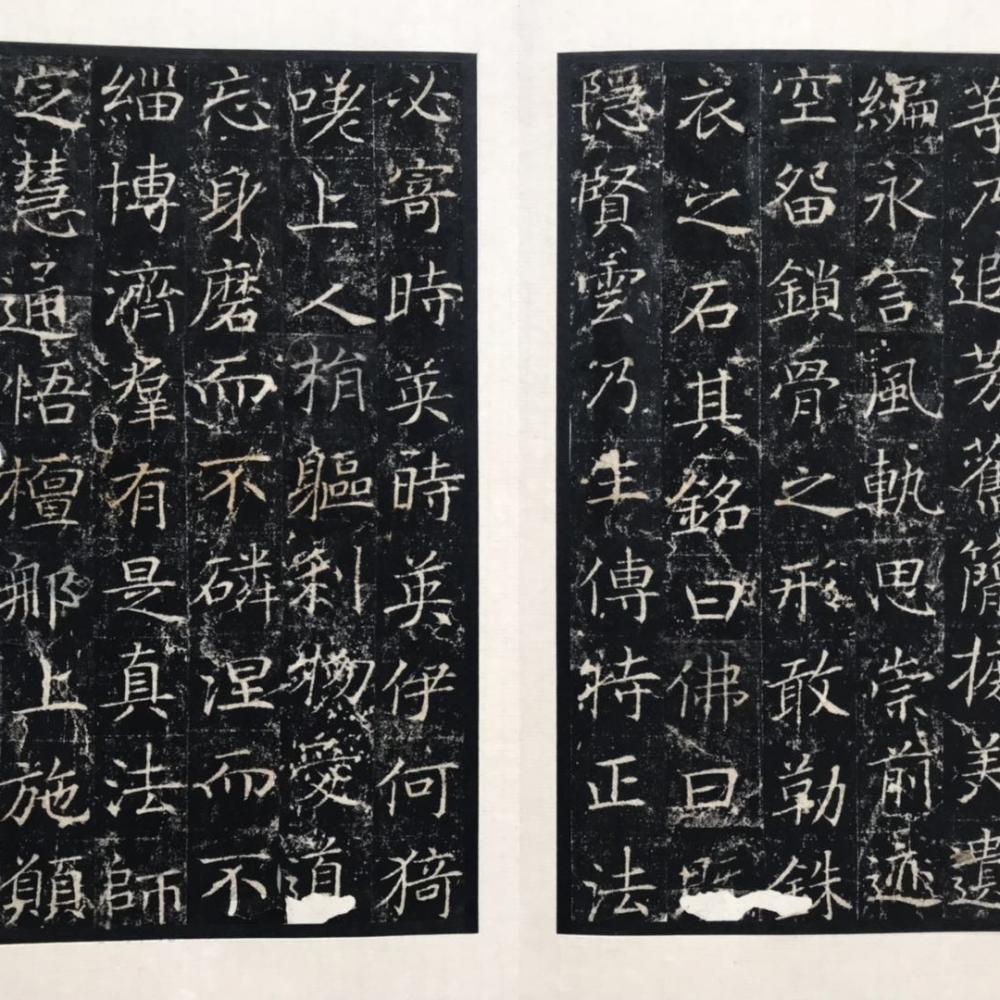 等乃追芳舊簡摭美遺
編永言風軌思崇前迹
空留鎖骨之形敢勒銖
衣之石其銘曰佛日既
隱賢雲乃生傳持正法
必寄時英時英伊何猗
嘆上人捐軀剎物愛道
忘身磨而不磷涅而不
緇博濟羣有是真法師
定慧通悟檀那上施願